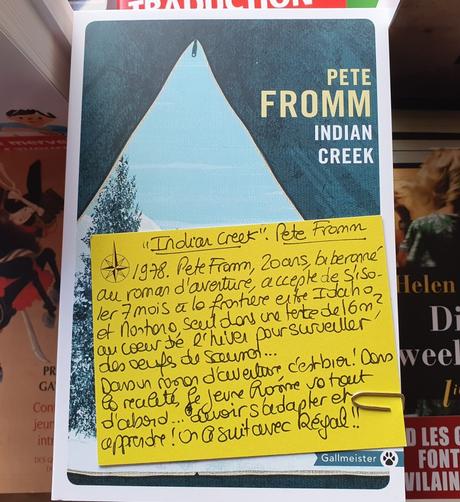 TRADUCTION
PETE
FROMM
INDIAN
CREEK
"Indian Creek". Pete Fromm
1978. Pete Fromm, 20 ans, biberonné
au roman d'aventure, accepte de s'iso-
ler 7 mois à la frontière entre Idaho
et Montana, seul dans une tente de 16m2
au coeur de l'hiver pour surveiller
des oeufs de saumon...
Dans un roman d'aventure, c'est bien! Dans
la réalité, le jeune homme va tout
d'abord... devoir s'adapter et
apprendre! On le suit avec Régal!!
Gallmeister
Helen
Di
week
D LES C
FONT
VILAIN
PR
GA
Con
jeun
intr